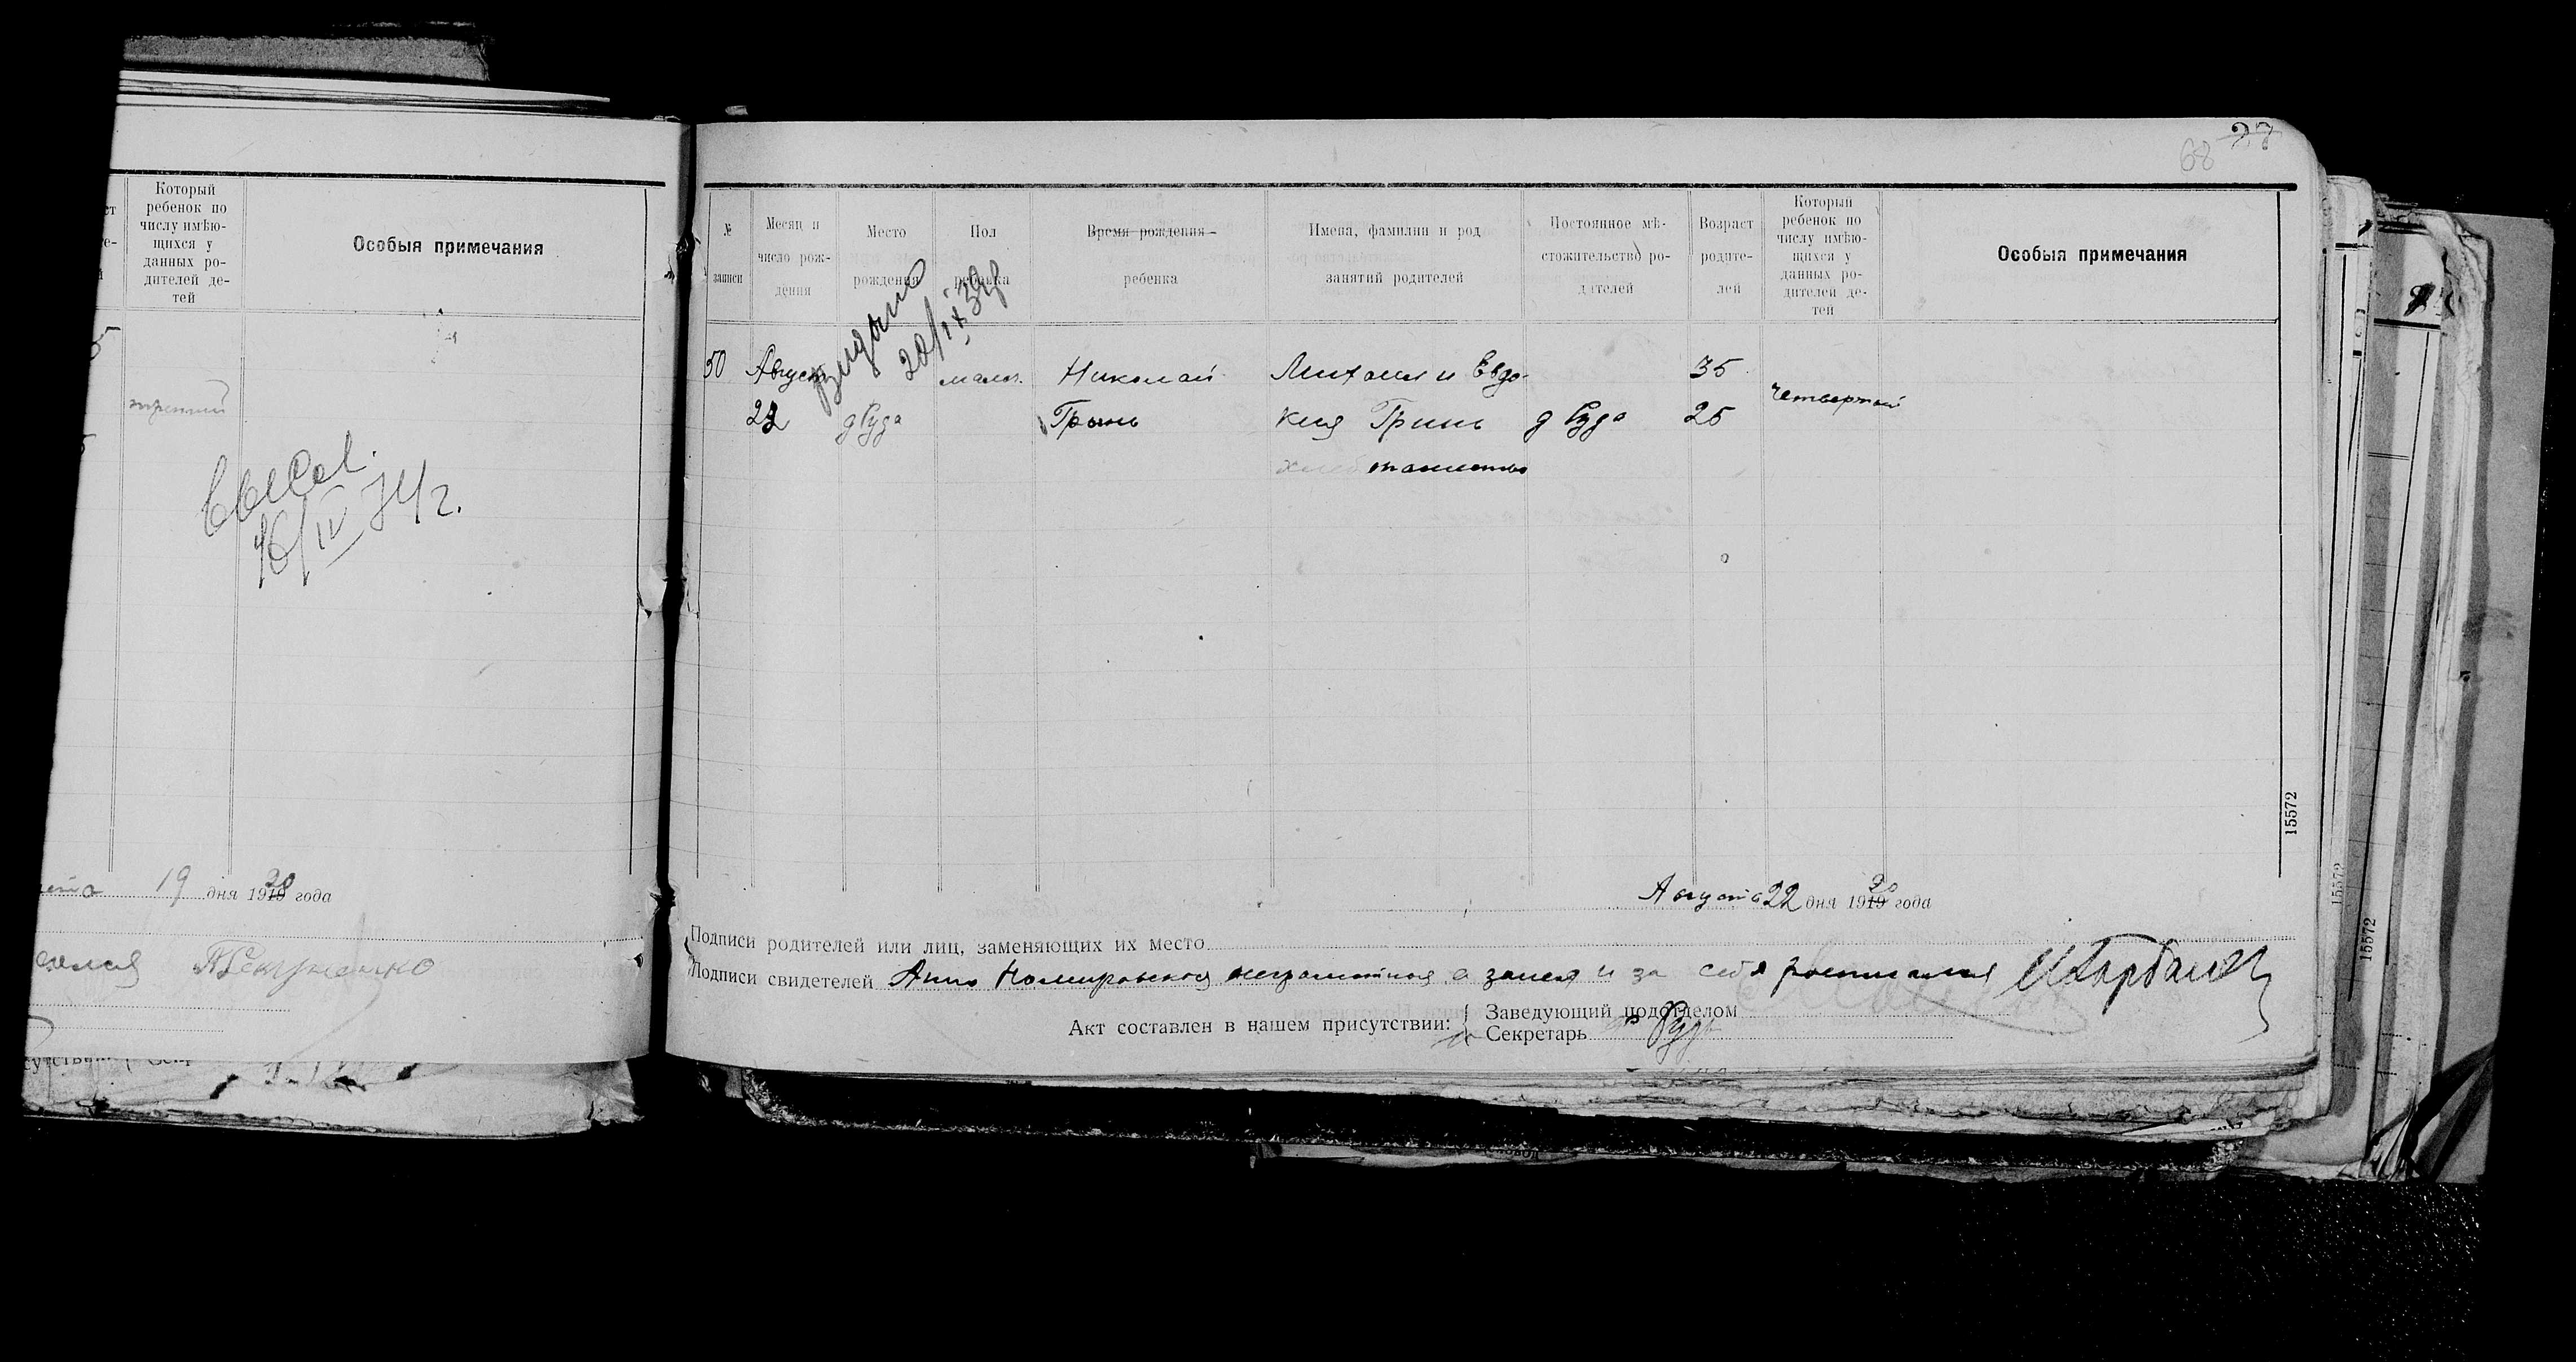 Который
ребенок по
числу имѣю-
щихся у
данных ро-
дителей де-
тей
Особыя примечания
третий
16/IV 74 г.
19 дня 1920 года
27
68
№
записи
Месяц и
число рож-
дения
Место
рождения
Пол
ребенка
Время рождения
ребенка
Имена, фамилии и род
занятий родителей
Постоянное мѣ-
стожительство ро-
дителей
Возраст
родите-
лей
Который
ребенок по
числу имѣю-
щихся у
данных ро-
дителей де-
тей
Особыя примечания
Выдано
20/IX 39г
50 Август мальч. Николай Михаил и Евдо- 35 четвертый
22 д Руда Гринь кия Гринь д Руда 25
хлебопашество
15572
Августа 22 дня 1920 года
Подписи родителей или лиц, заменяющих их место
Подписи свидетелей Анна неграмотная а за нея и за себя росписался
Акт составлен в нашем присутствии:
Заведующий подотделом
Секретарь
15572
15572